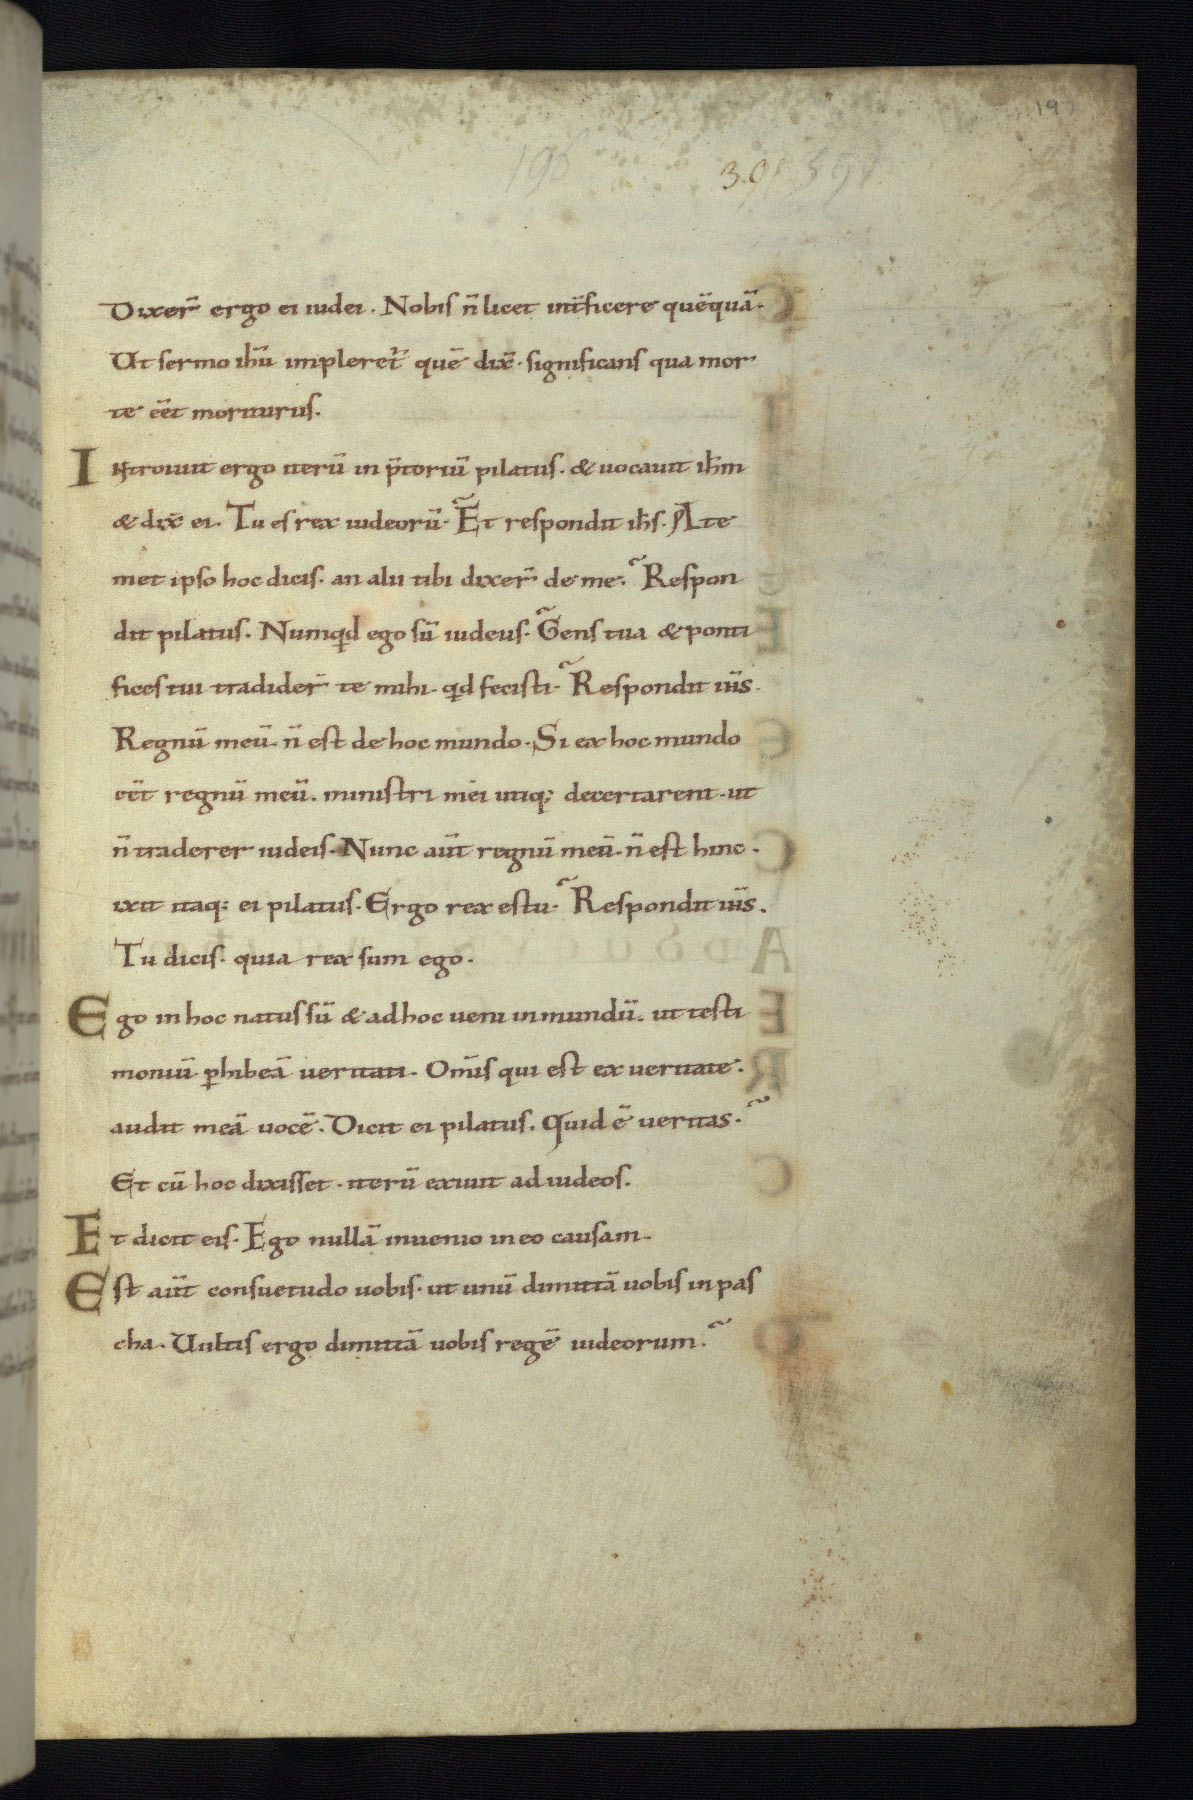 197
196
301 597
Dixer̄ ergo ei iudei. Nobis n̄ licet int̄ficere quēquā.
Ut sermo ih̄u impleret̄ quē dix̄. significans qua mor
te eēt moriturus.
Introiuit ergo iterū in p̄toriū pilatus. & uocauit ih̄m
& dix̄ ei. Tu es rex iudeorū. Et respondit ih̄s. A te
met ipso hoc dicis. an alii tibi dixer̄ de me. Respon
dit pilatus. Numqd ego sū iudeus. Gens tua & ponti
fices tui tradider̄ te mihi. qd fecisti. Respondit iħs.
Regnū meū n̄ est de hoc mundo. Si ex hoc mundo
eēt regnū meū. ministri mei utiq; decertarent. ut
n̄ traderer iudeis. Nunc aūt regnū meū. n̄ est hinc.
ixit itaq; ei pilatus. Ergo rex es tu. Respondit iħs.
Tu dicis. quia rex sum ego.
Ego in hoc natus sū & ad hoc ueni in mundū. ut testi
moniū ꝑhibeā ueritati. Om̄is qui est ex ueritate.
audit meā uocē. Dicit ei pilatus. Quid ē ueritas.
Et cū hoc dixisset. iterū exiuit ad iudeos.
Et dicit eis. Ego nullā inuenio in eo causam.
Est aūt consuetudo uobis. ut unū dimittā uobis in pas
cha. Uultis ergo dimittā uobis regē iudeorum.